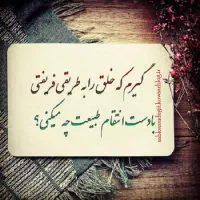 گیرم که خلق را به طریقی فریفتی
با دست انتقام طبیعت چه میکنی؟